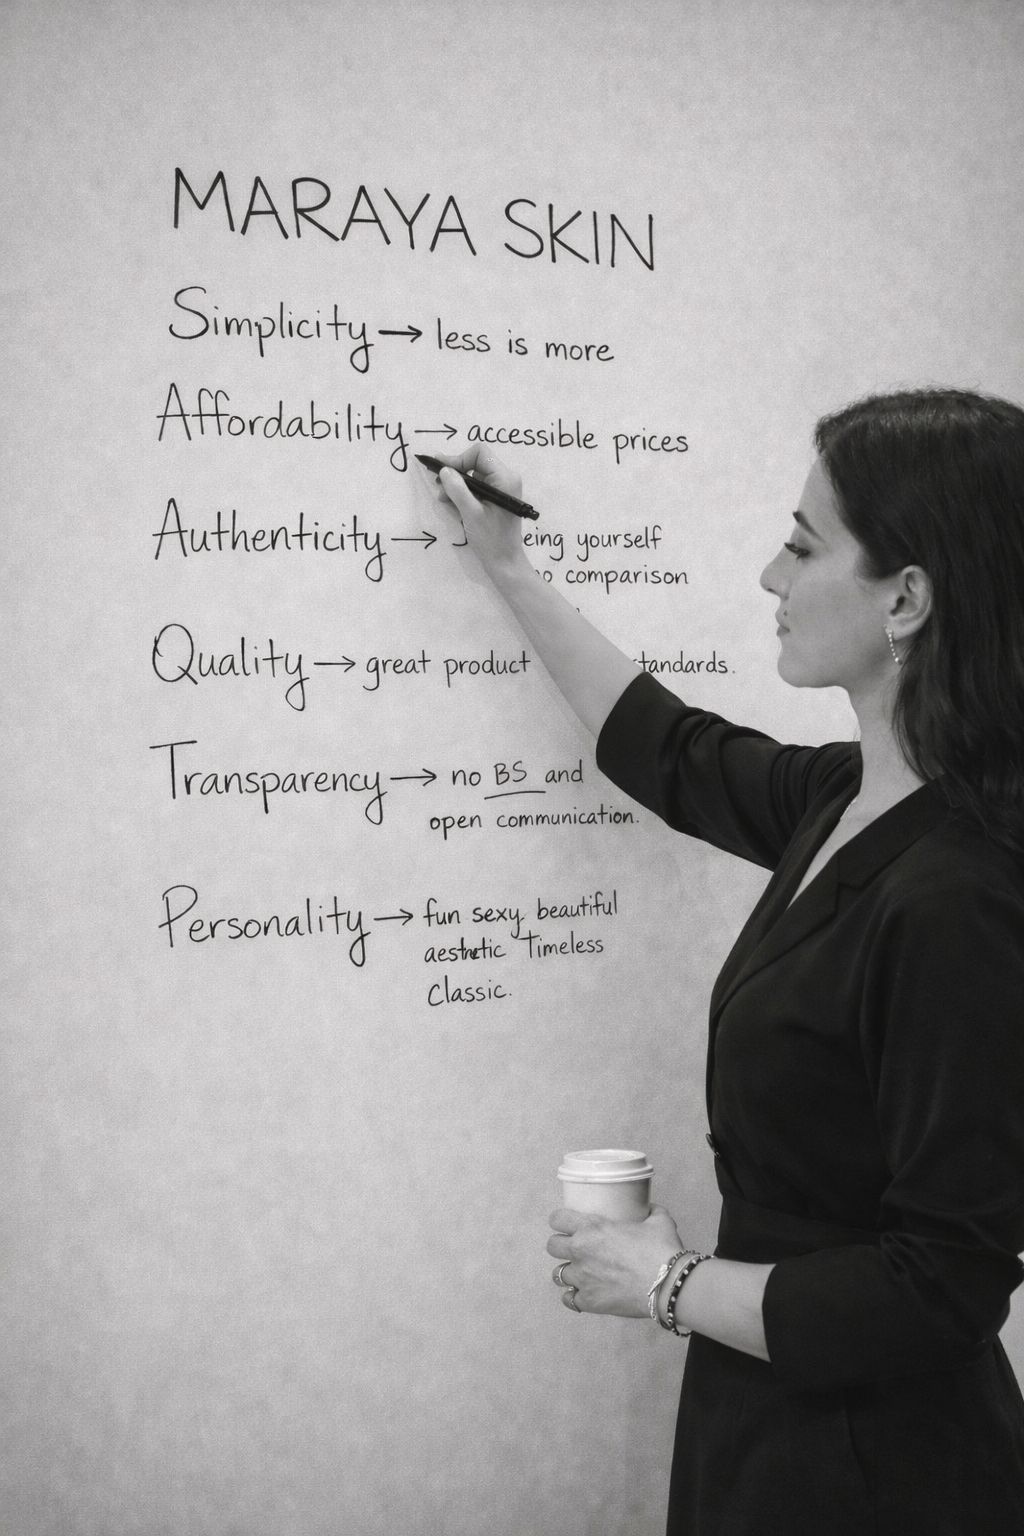 MARAYA SKIN
Simplicity → less is more
Affordability → accessible prices
Authenticity → yourself
comparison
Quality → great product
Transparency → no BS and
open communication.
Personality → fun sexy beautiful
aesthetic Timeless
Classic.